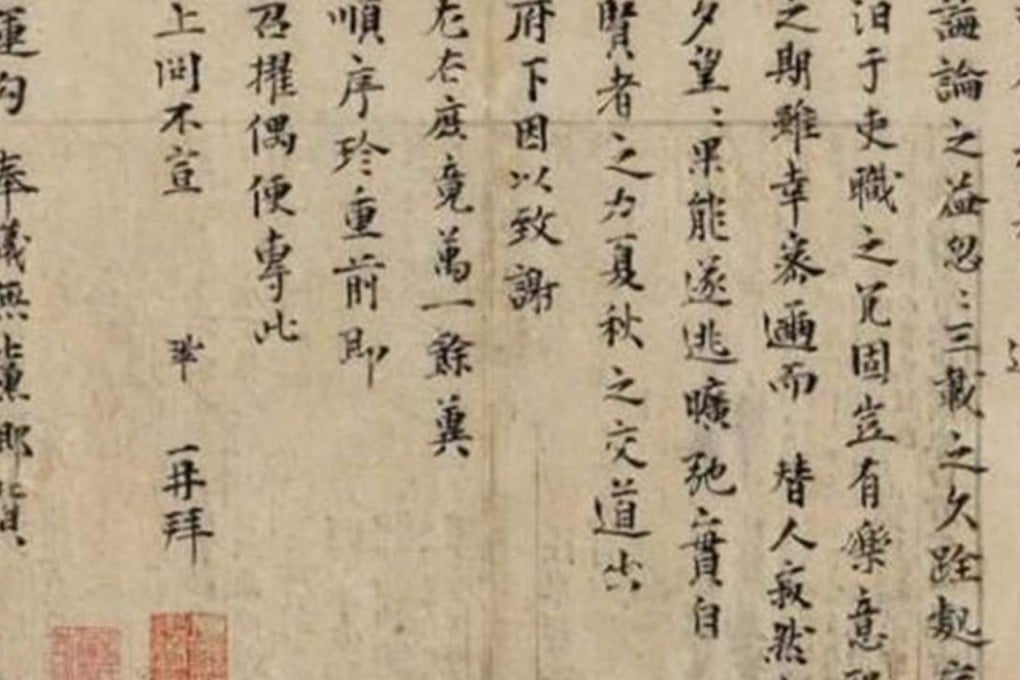 誨論之益忽〻三載之久跧處
汨于吏職之冗固豈有樂意耶
之期雖幸密邇而替人寂然
夕望〻果能遂逃曠弛實自
賢者之力夏秋之交道出
府下因以致謝
左右庶竟萬一餘冀
順序珍重前即
召擢偶便專此
上問不宣 鞏 再拜
運勾奉議無黨鄉賢